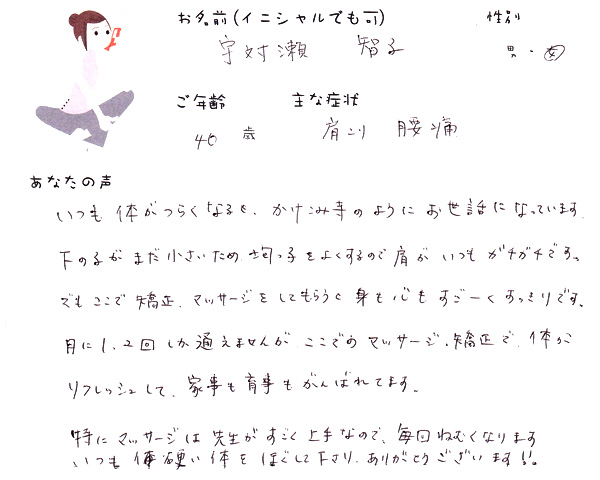 お名前(イニシャルでも可) 性別
宇対瀬 智子 男・女
ご年齢 主な症状
40 歳 肩こり 腰痛
あなたの声
いつも体がつらくなると、かけこみ寺のようにお世話になっています。
下の子がまだ小さいため、抱っ子をよくするので肩がいつもガチガチです。
でもここで矯正、マッサージをしてもらうと身も心もすごーくすっきりです。
月に1、2回しか通えませんが、ここでのマッサージ、矯正で、体が
リフレッシュして、家事も育事もがんばれてます。
特にマッサージは先生がすごく上手なので、毎回ねむくなります
いつも硬い体をほぐして下さり、ありがとうございます!!